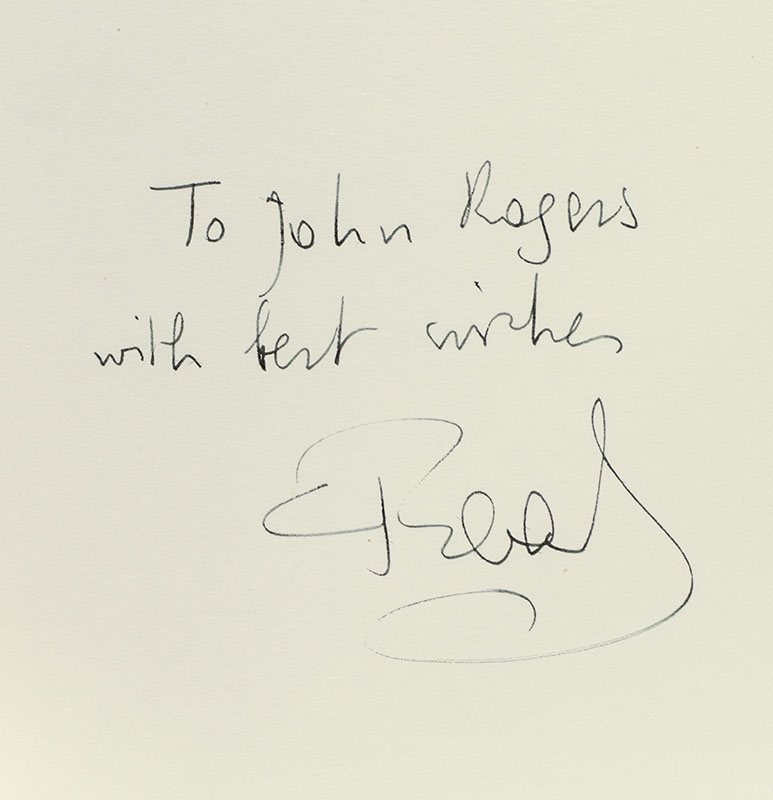 To John Rogers
with best wishes